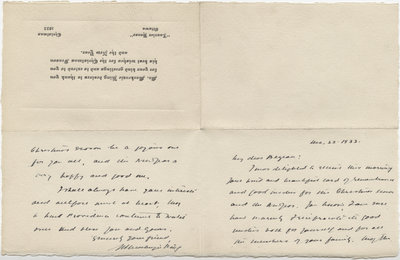 Mr. Mackenzie King desires to thank you
for your kind greetings and to extend to you
his best wishes for the Christmas Season
and the New Year.
"Laurier House"
Ottawa
Christmas
1933
Dec. 22. 1933.
My dear
I was delighted to receive this morning
your kind and beautiful card of remembrance
and good wishes for this Christmas Season
and the New Year. You know how
warmly I reciprocate its good
wishes both for yourself and for all
the members of your family. May the
Christmas Season be a joyous one
for you all, and the New Year a
very happy and good one.
I shall always have your interests
and welfare at heart. May
a kind Providence continue to
over and bless you and yours.
Sincerely your friend,
W. L. Mackenzie King